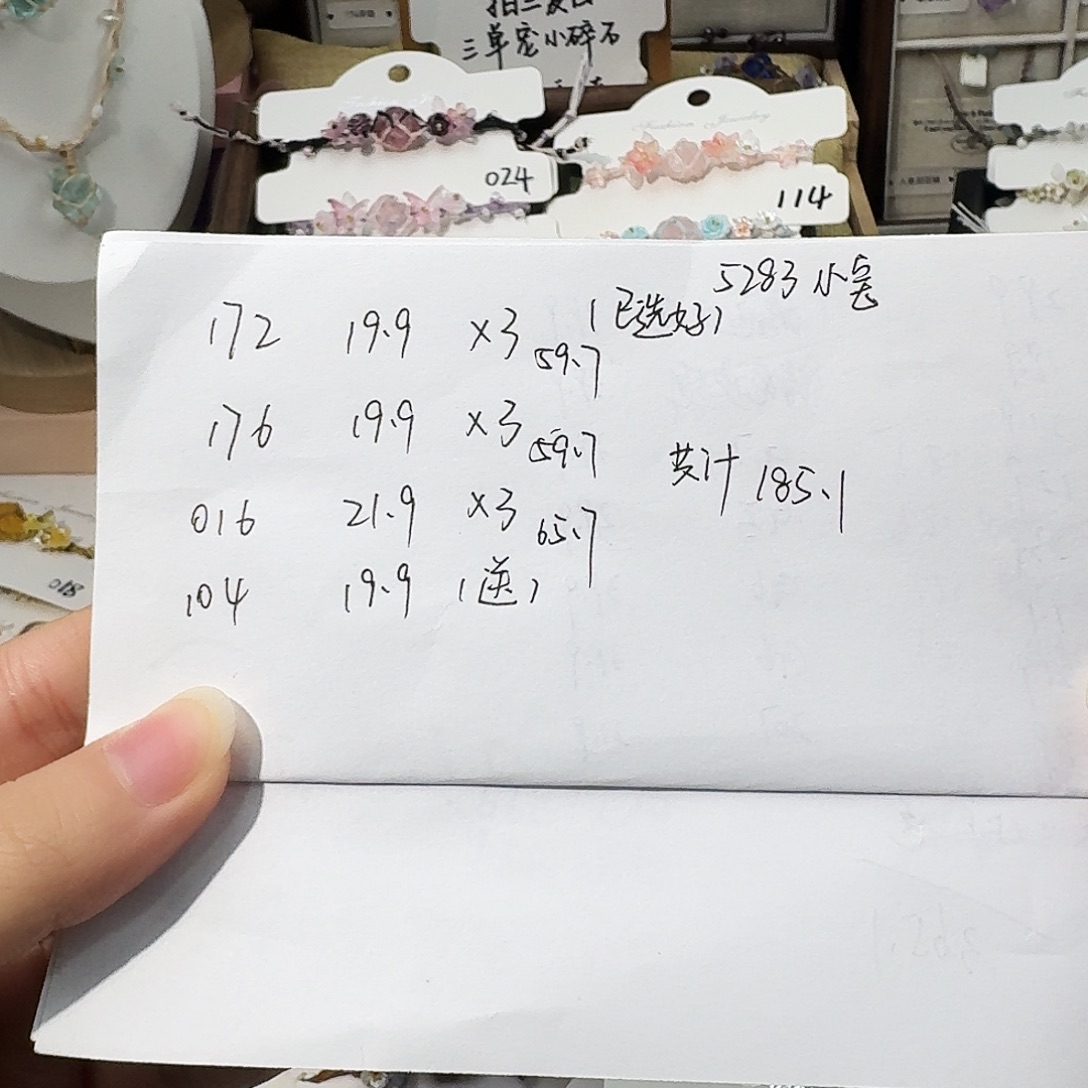 三单宠小碎石
024
Fashion Jewelry
114
018
5283 小宝
172 19.9 ×3 59.7 (已选好)
176 19.9 ×3 59.7
共计 185.1
016 21.9 ×3 65.7
104 19.9 (送)